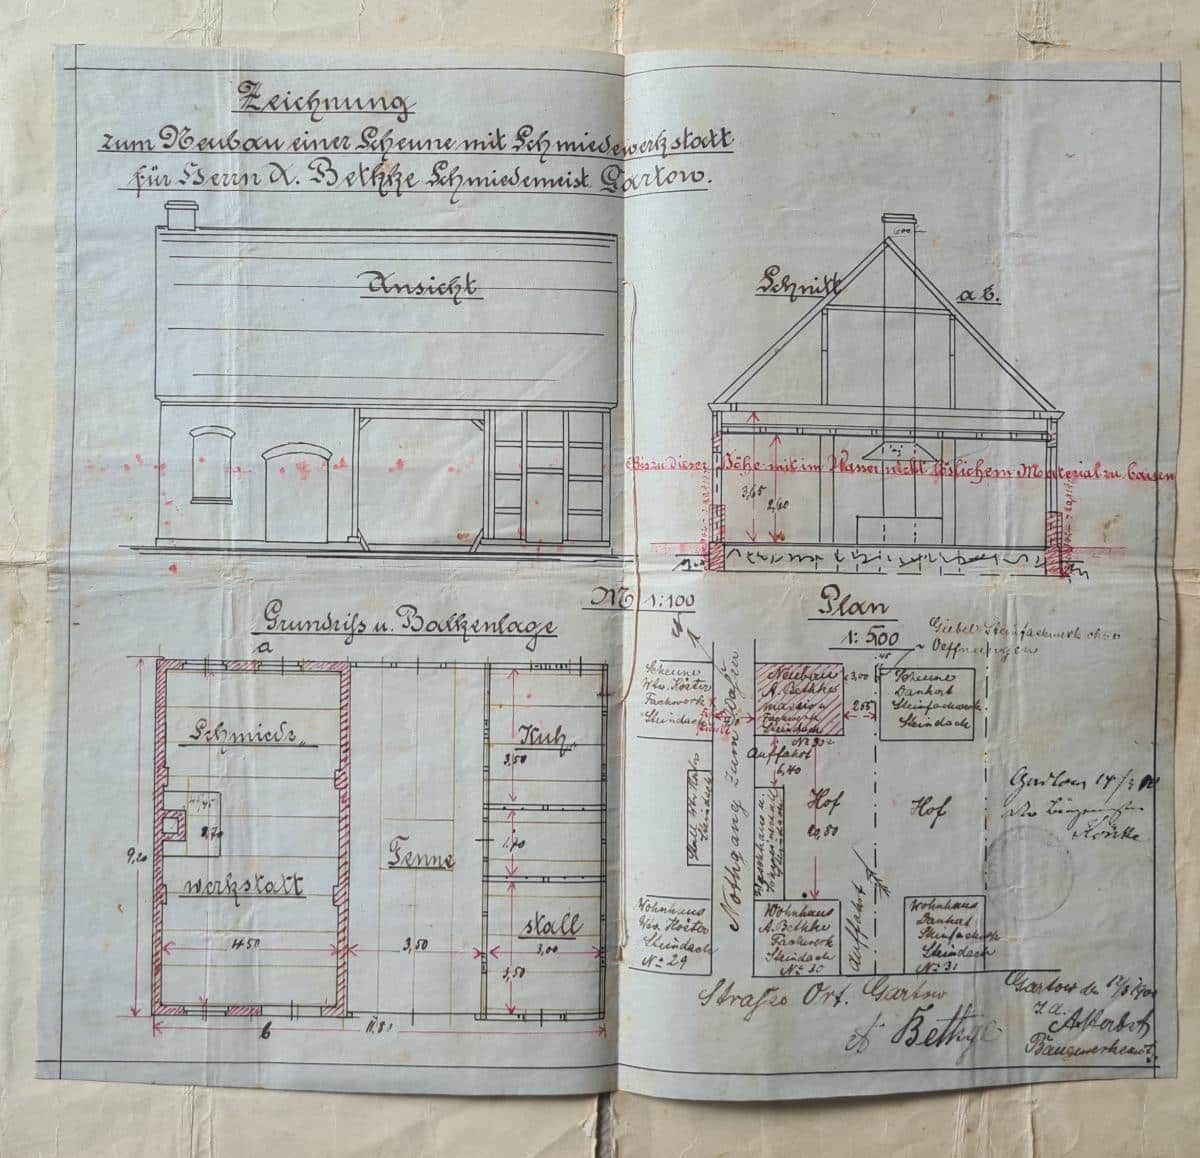 Zeichnung
zum Neubau einer Scheune mit Schmiedewerkstatt
für Herrn A. Bethke Schmiedemeist. Gartow.
Ansicht
600
Schnitt a b.
Bis zu dieser Höhe mit im Wasser nicht löslichem Material zu bauen
3,65
2,60
M 1:100
Grundriss u. Balkenlage
a
Schmiede„
werkstatt
2,70
9,20
4.50
Tenne
3,50
Kuh„
3,50
1,70
stall
3,00
3,50
b
11.80
Plan
1:500
Giebel Steinfachwerk ohne
Oeffnungen
Scheune
Wtw. Köster
Fachwerk
Steindach
Neubau
A. Bethke
massiv u
Fachwerk
Steindach
№ 30
3,00
2,55
Scheune
Dankert
Steinfachwerk
Steindach
Nothgang zum
Auffahrt
6,40
Hof
20,80
Hof
Auffahrt
Steindach
Wohnhaus
Wtw. Köster
Steindach
№ 29
Wohnhaus
A. Bethke
Fachwerk
Steindach
№ 30
Wohnhaus
Dankert
Steinfachwerk
Steindach
№ 31
Strasse Ort. Gartow
A Bethge
Gartow
Gartow den
I. A.